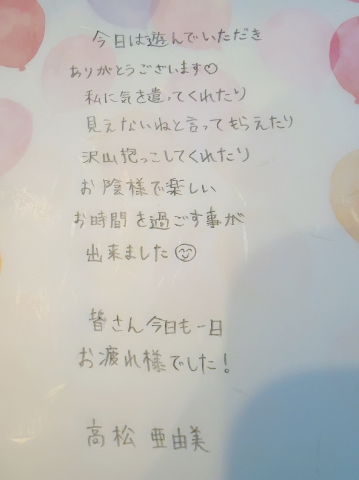 今日は遊んでいただき
ありがとうございます♡
私に気を遣ってくれたり
見えないねと言ってもらえたり
沢山抱っこしてくれたり
お陰様で楽しい
お時間を過ごす事が
出来ました☺
皆さん今日も一日
お疲れ様でした!
高松 亜由美